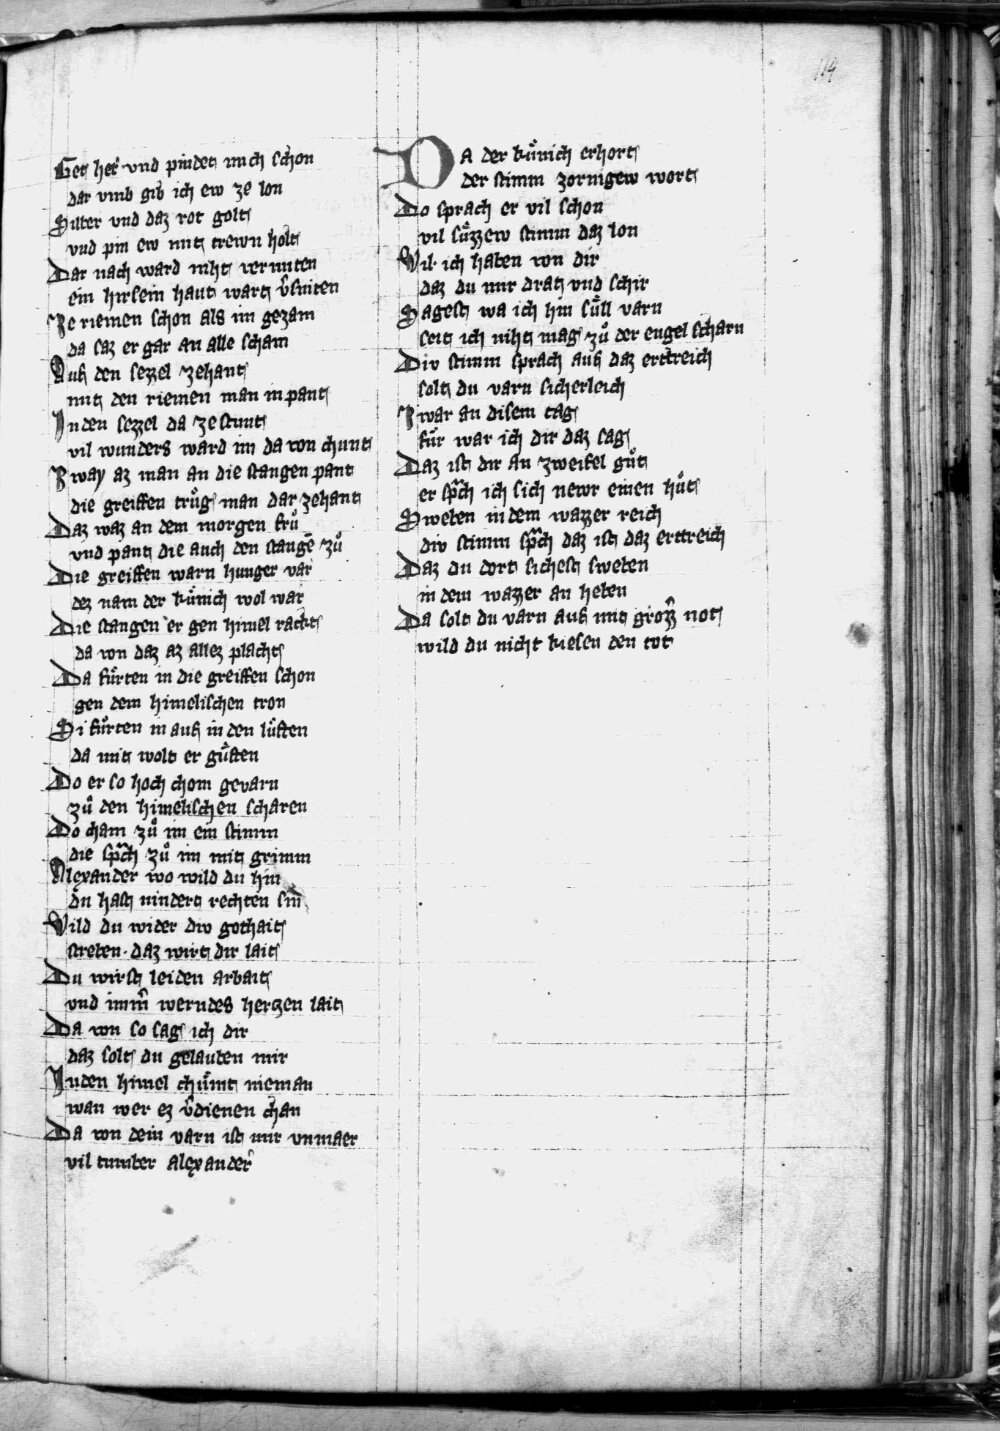 114
Get her vnd pindet mich schon
dar vmb gib ich ew ze lon
Silber vnd daz rot golt
vnd pin ew mit trewn holt
Dar nach ward niht vermiten
ein hirsein haut wart v̂sniten
Ze riemen schon als im gezam
da saz er gar an alle scham
Auf den sezzel zehant
mit den riemen man in pant
In den sezzel da ze stunt
vil wunders ward im da von chunt
Zway az man an die stangen pant
die greiffen trůg man dar zehant
Daz waz an dem morgen frů
vnd pant die auch den stangē zů
Die greiffen warn hunger var
dez nam der kůnich wol war
Die stangen er gen himel racht
da von daz az allez placht
Da fůrten in die greiffen schon
gen dem himelischen tron
Si fůrten in auf in den lůften
da mit wolt er gůften
Do er so hoch chom gevarn
zů den himelischen scharen
Do cham zů im ein stimm
die sprach zů im mit grimm
Alexander wo wild du hin
du hast nindert rechten sin
Wild du wider div gothait
streben · daz wirt dir lait
Du wirst leiden arbait
vnd imm̂ werndes hertzen lait
Da von so sag ich dir
daz solt du gelauben mir
In den himel chůmt nieman
wan wer ez v̂dienen chan
Da von dein varn ist mir vnmaer
vil tumber alexander
DA der kůnich erhort
der stimm zornigew wort
Do sprach er vil schon
vil sůzzew stimm daz lon
Wil ich haben von dir
daz du mir drat vnd schir
Sagest wa ich hin sůll varn
seit ich niht mag zů der engel scharn
Div stimm sprach auf daz ertreich
solt du varn sicherleich
Zwar an disem tag
fůr war ich dir daz sag
Daz ist dir an zweifel gůt
er sprach ich sich newr einen hůt
Sweben in dem wazzer reich
div stimm sprach daz ist daz ertreich
Daz du dort sichest sweben
in dem wazzer an heben
Da solt du varn auf mit grozẑ not
wild du nicht kiesen den tot